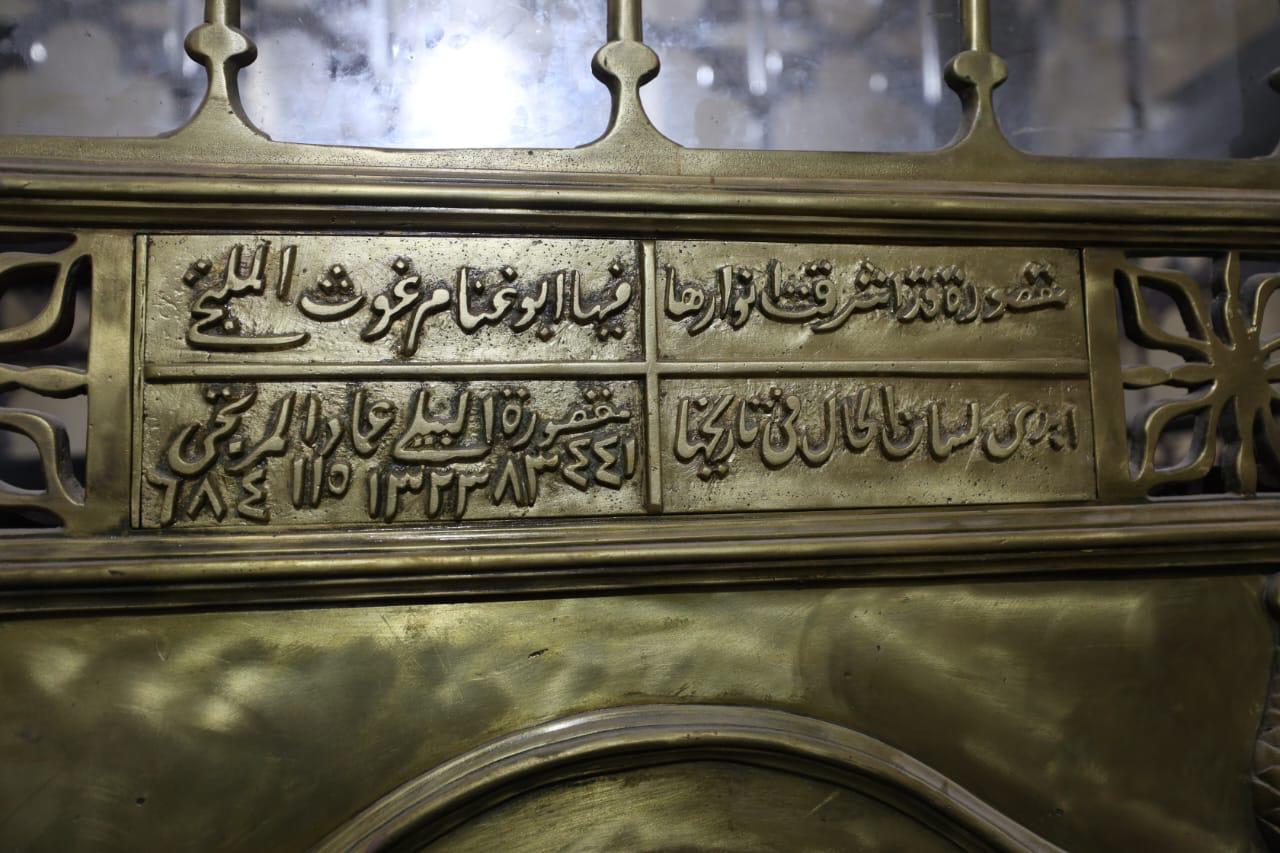 مقصورة قد اشرقت انوارها
فيها ابو غنام غوث الملتجي
ابدى لسان الحال في تاريخها
مقصورة البيلي عماد المرتجى
٤٤١ ٨٣ ١٣٢٣ ١١٥ ٦٨٤